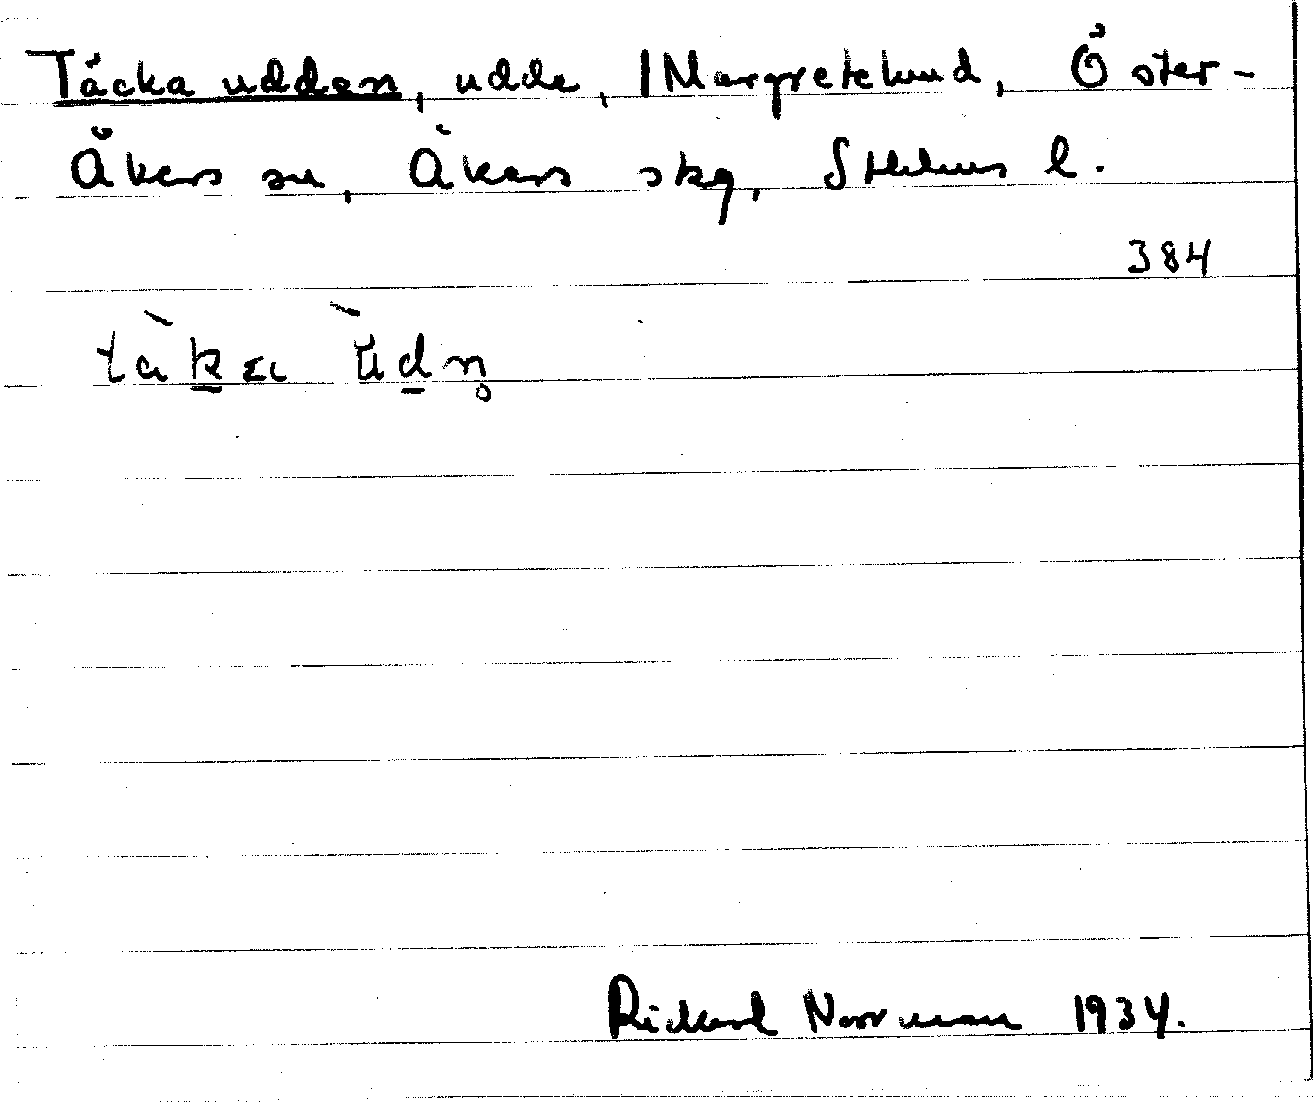 Täcka udden, udde, Margretelund, Öster-
Åkers sn, Åkers skg, Sthlms l.
384
tàka ùdn̥
Rickard Norrman 1934.